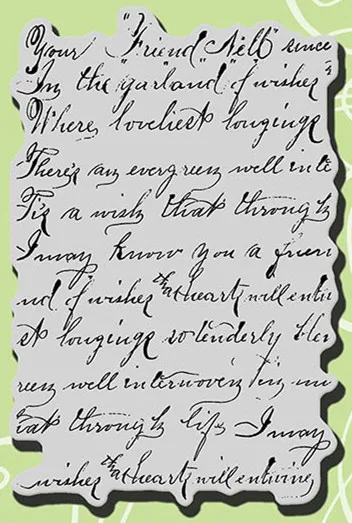 Your "Friend" "Nell" since
In the "garland" of wishes
Where loveliest longings
There's an evergreen well inte
'Tis a wish that through
I may know you a frien
nd of wishes that hearts will entwi
st longings so tenderly blen
reen well interwoven in m
hat through life I may
wishes that hearts will entwine